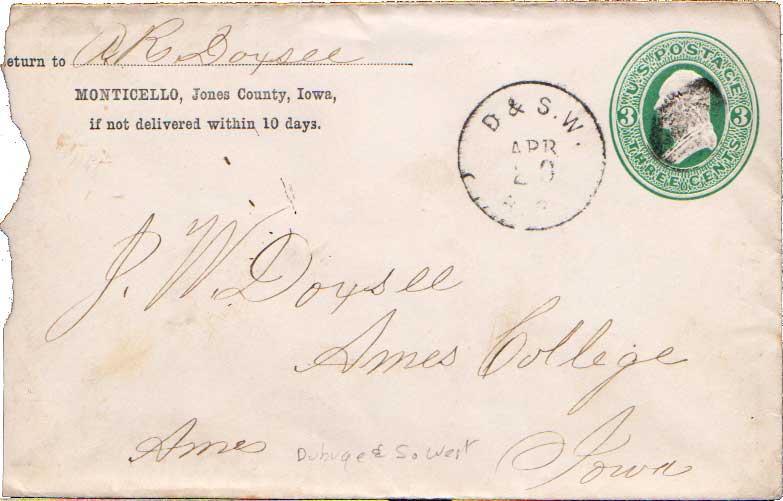 eturn to A R Doxsee
MONTICELLO, Jones County, Iowa,
if not delivered within 10 days.
D & S.W.
APR
20
U.S. POSTAGE
3 3
THREE CENTS
J. W. Doxsee
Ames College
Ames Iowa
Dubuqe & So West